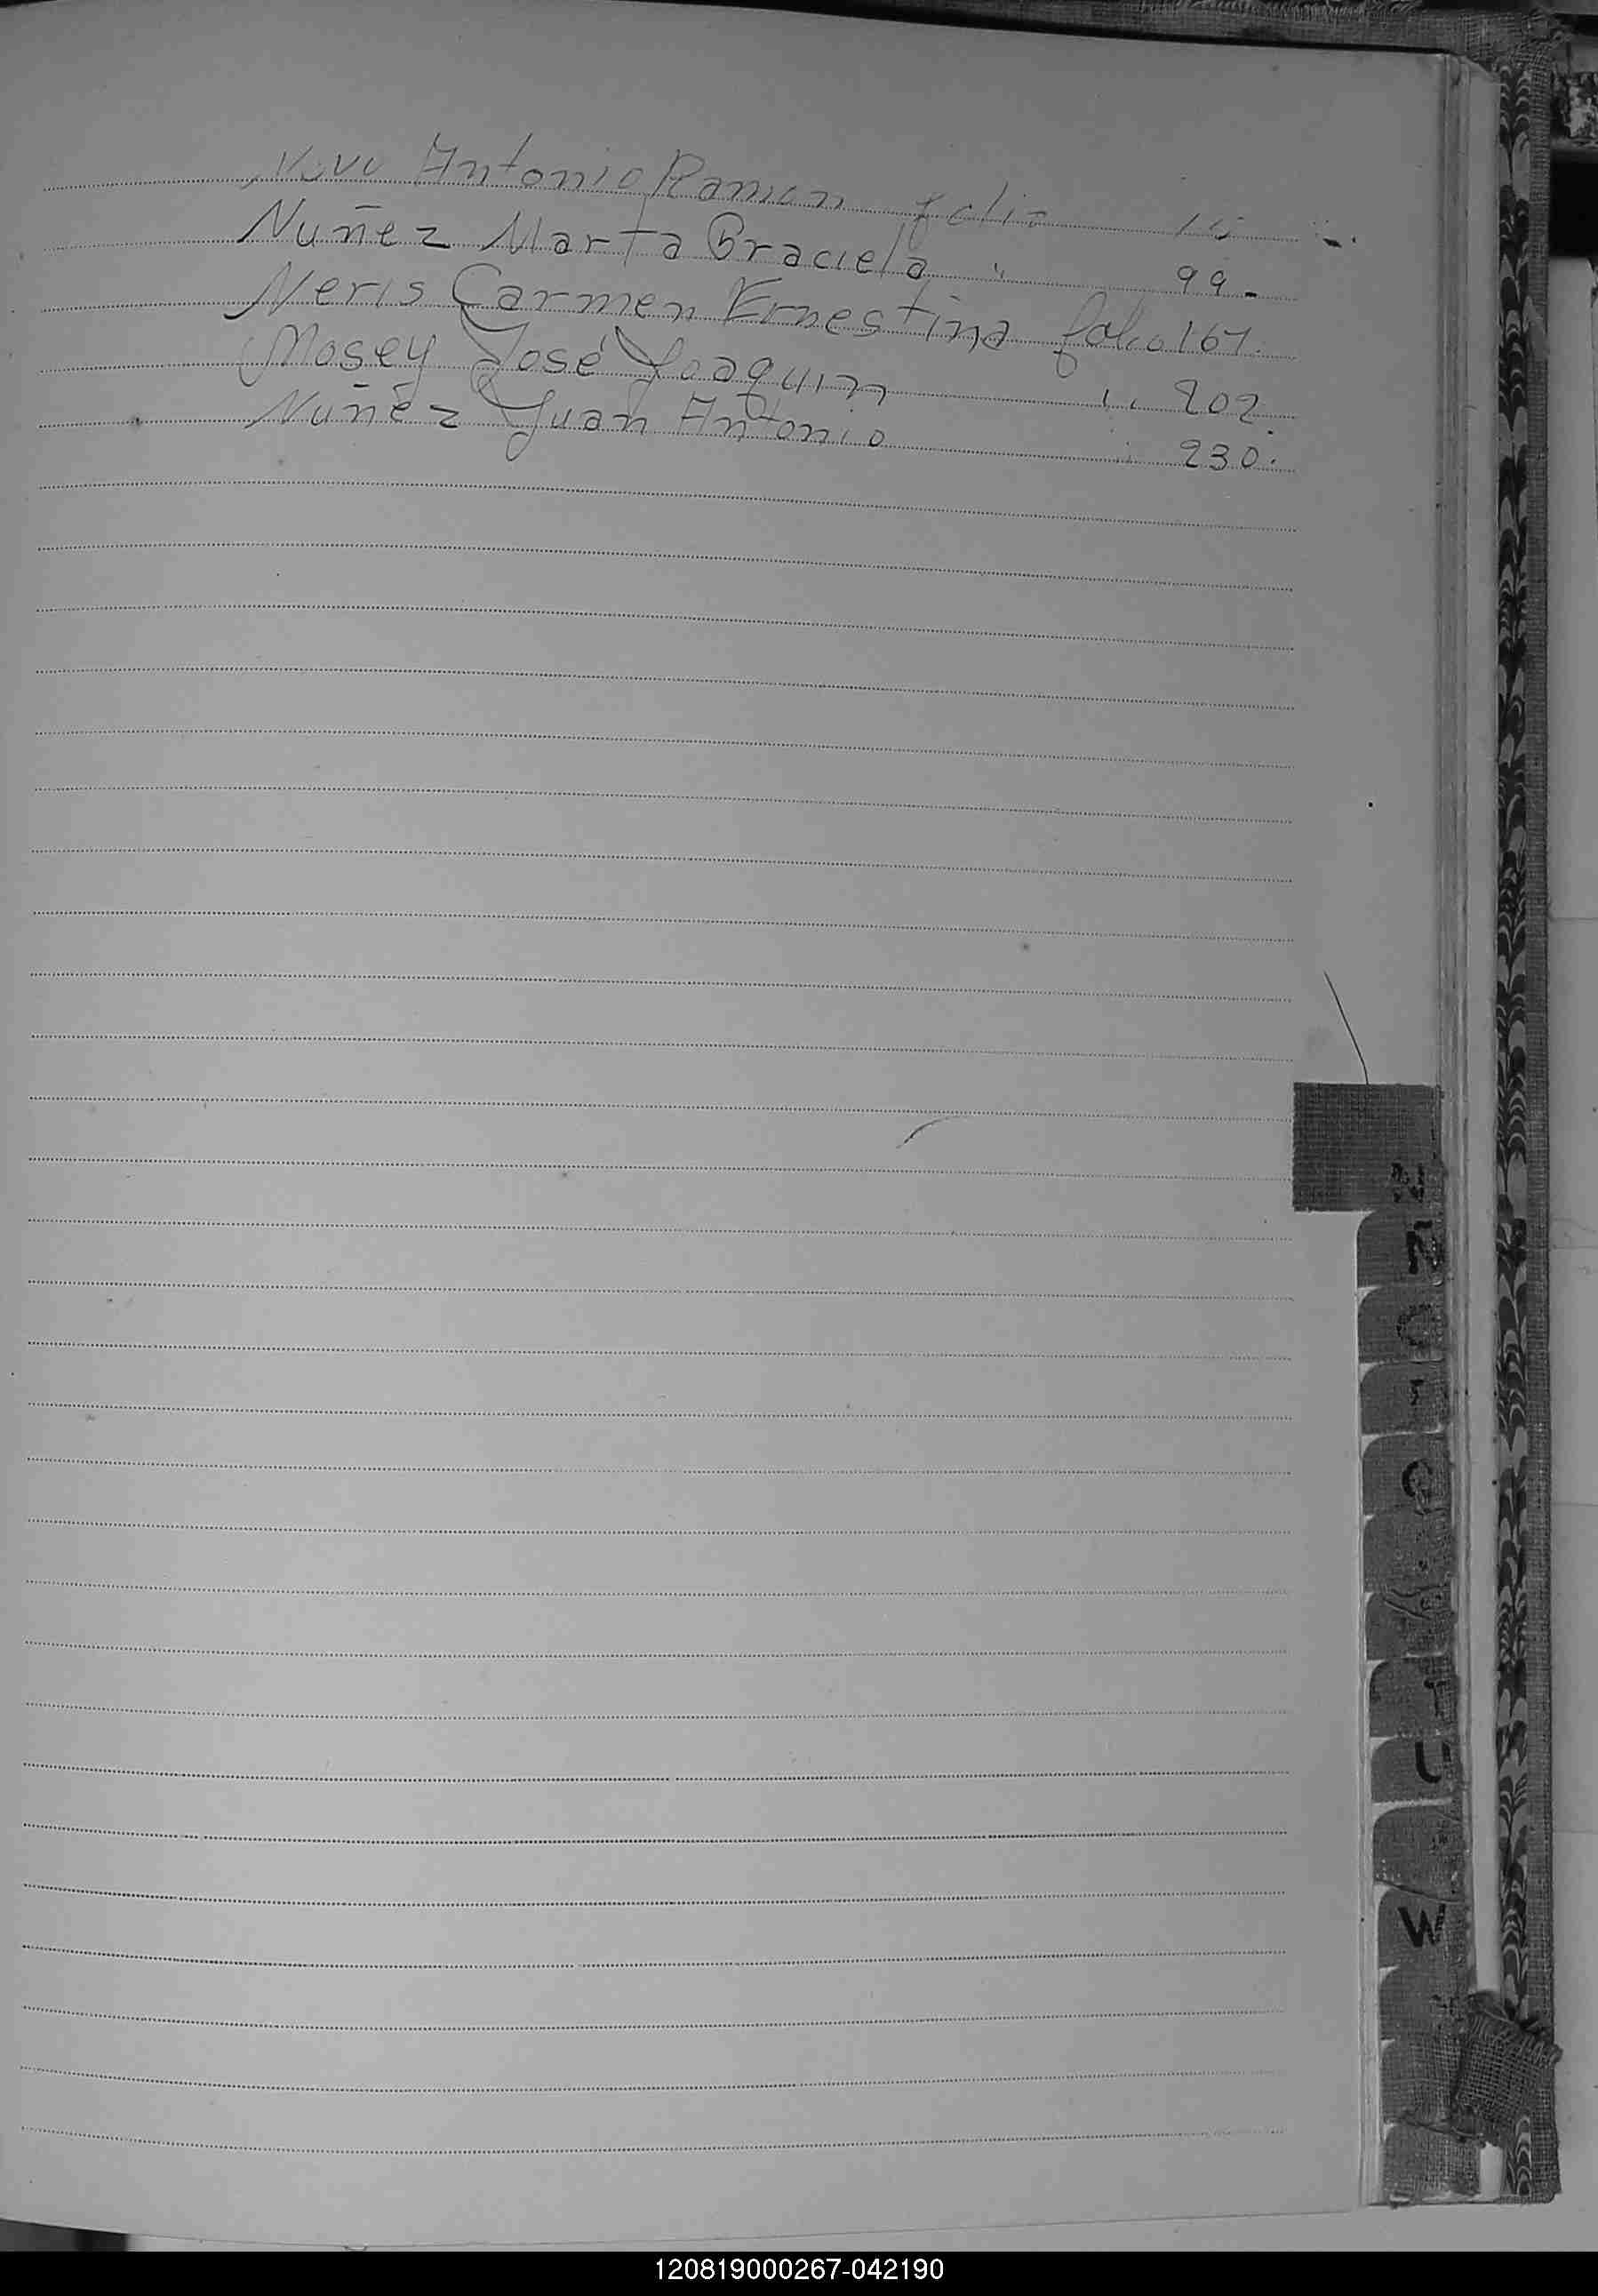 Antonio Ramon folio
Nuñez Marta Graciela " 99.-
Neris Carmen Ernestina folio 167.
Mosey José Joaquin " 202.
Nuñez Juan Antonio " 230.
N
Ñ
O
Q
T
U
W
120819000267-042190